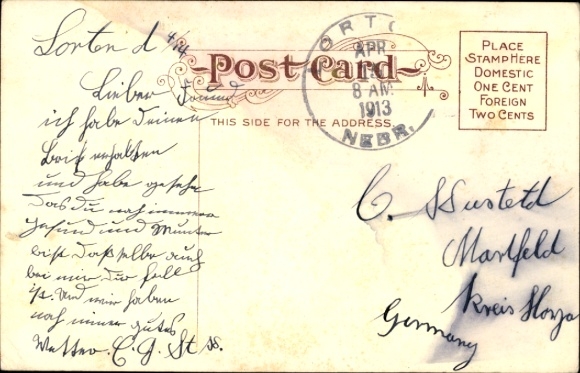 Lorten d 4/14
Lieber Freund
ich habe deinen
Brif erhalten
und habe gesehn
das du noch immer
gesund und Munter
bist. dasselbe auch
bei mir der fall
ist. Und wir haben
noch immer gutes
Wetter. C. J. St
POST CARD
THIS SIDE FOR THE ADDRESS.
ORTO
APR
8 AM
1913
NEBR.
PLACE
STAMP HERE
DOMESTIC
ONE CENT
FOREIGN
TWO CENTS
C. Wustefeld
Martfeld
Kreis Hoya
Germany